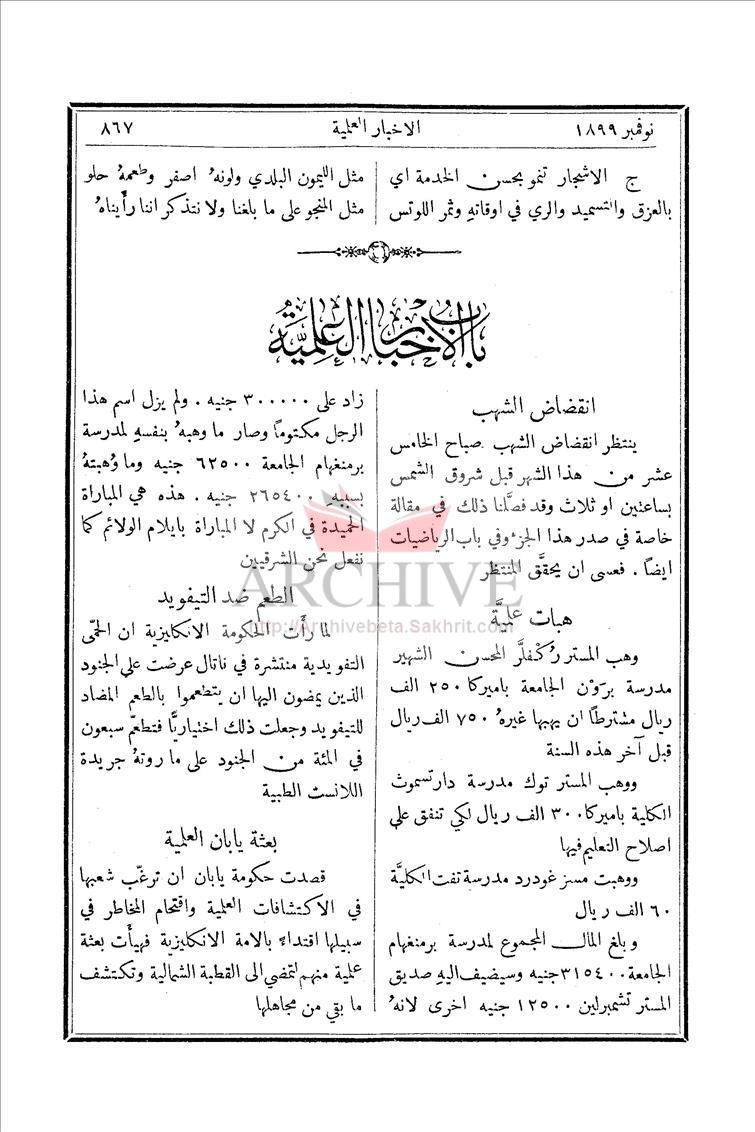 نوفمبر ١٨٩٩
الاخبار العلمية
٨٦٧
ج الاشجار تنمو بحسن الخدمة اي
بالعزق والتسميد والري في اوقاتهِ وثمر اللوتس
مثل الليمون البلدي ولونهُ اصفر وطعمهُ حلو
مثل المنجو على ما بلغنا ولا نتذكر اننا رأيناهُ
باب الاخبار العلمية
انقضاض الشهب
ينتظر انقضاض الشهب صباح الخامس
عشر من هذا الشهر قبل شروق الشمس
بساعتين او ثلاث وقد فصَّلنا ذلك في مقالة
خاصة في صدر هذا الجزء وفي باب الرياضيات
ايضاً . فعسى ان يحقَّق المنتظر
هبات علميَّة
وهب المستر رُكْفلَّر المحسن الشهير
مدرسة برَوْن الجامعة باميركا ٢٥٠ الف
ريال مشترطاً ان يهبها غيرهُ ٧٥٠ الف ريال
قبل آخر هذه السنة
ووهب المستر توك مدرسة دارتسموث
الكلية باميركا ٣٠٠ الف ريال لكي تنفق على
اصلاح التعليم فيها
ووهبت مسز غودرد مدرسة تفت الكليَّة
٦٠ الف ريال
وبلغ المال المجموع لمدرسة برمنغهام
الجامعة ٣١٥٤٠٠ جنيه وسيضيف اليهِ صديق
المستر تشمبرلين ١٢٥٠٠ جنيه اخرى لانهُ
زاد على ٣٠٠٠٠٠ جنيه . ولم يزل اسم هذا
الرجل مكتوماً وصار ما وهبهُ بنفسهِ لمدرسة
برمنغهام الجامعة ٦٢٥٠٠ جنيه وما وُهبتهُ
بسببهِ ٢٦٥٤٠٠ جنيه . هذه هي المباراة
الحميدة في الكرم لا المباراة بايلام الولائم كما
نفعل نحن الشرقيين
الطعم ضد التيفويد
لما رأَت الحكومة الانكليزية ان الحمَّى
التفويدية منتشرة في ناتال عرضت على الجنود
الذين يمضون اليها ان يتطعموا بالطعم المضاد
للتيفويد وجعلت ذلك اختياريًّا فتطعَّم سبعون
في المئة من الجنود على ما روتهُ جريدة
اللانست الطبية
بعثة يابان العلمية
قصدت حكومة يابان ان ترغّب شعبها
في الاكتشافات العلمية واقتحام المخاطر في
سبيلها اقتداءً بالامة الانكليزية فهيأَت بعثة
علمية منهم لتمضي الى القطبة الشمالية وتكتشف
ما بقي من مجاهلها
ARCHIVE
http://Archivebeta.Sakhrit.com